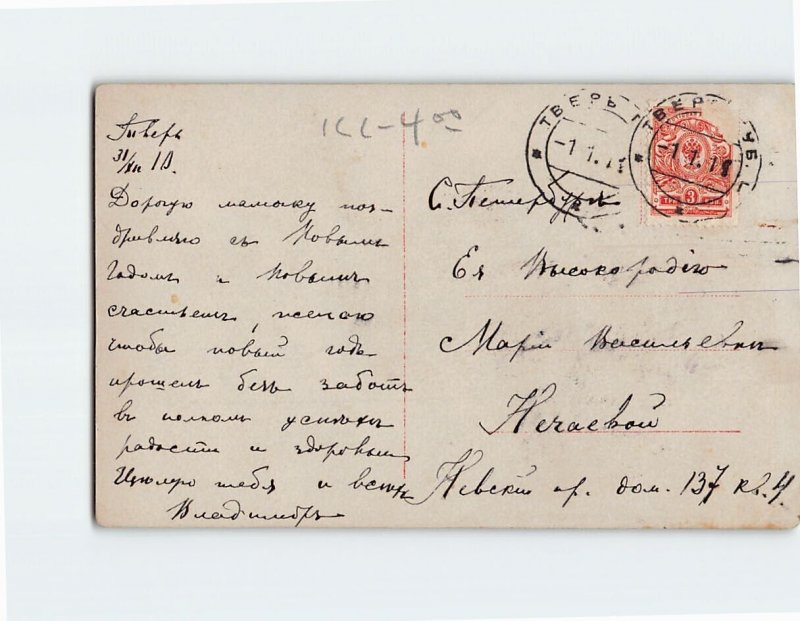 Тверь
31/XII 10.
Дорогую мамочку поз-
дравляю съ Новымъ
Годомъ и Новымъ
счастьемъ, желаю
чтобы новый годъ
прошелъ безъ заботъ
въ полномъ успѣхѣ
радости и здоровьи
Цѣлую тебя и всѣхъ
Владимиръ
ICL-4 00
ТВЕРЬ Г
-1.1.11
ТВЕР УБ. Г
-1.1.11
3
С. Петербургъ
Ея Высокородію
Маріи Васильевнѣ
Нечаевой
Невскій пр. дом. 137 кв. 4